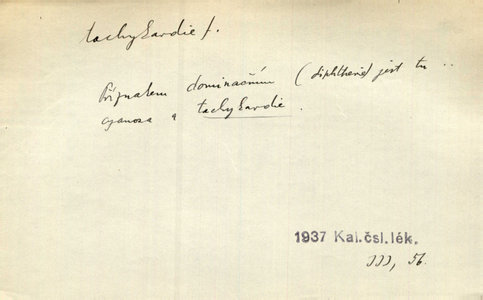 tachykardie f.
Příznakem dominačním (diphtherie) jest tu ..
cyanosa a tachykardie.
1937 Kal.čsl.lék.
III, 56.